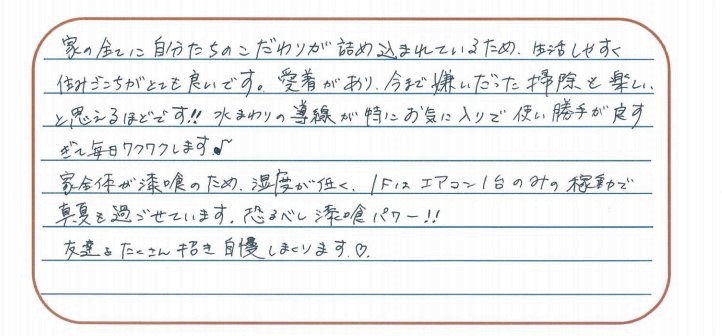 家の全てに自分たちのこだわりが詰め込まれているため、生活しやすく
住みごこちがとても良いです。愛着があり、今まで嫌いだった掃除も楽しい
と思えるほどです!! 水まわりの導線が特にお気に入りで使い勝手が良す
ぎて毎日ワクワクします♪
家全体が漆喰のため、湿度が低く、1Fはエアコン1台のみの稼動で
真夏も過ごせています。恐るべし漆喰パワー!!
友達もたくさん招き自慢しまくります♡。